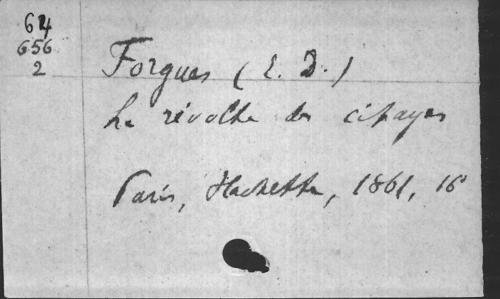 64
656
2
Forgues (E. D.)
La révolte des cipayes
Paris, Hachette, 1861, 16°